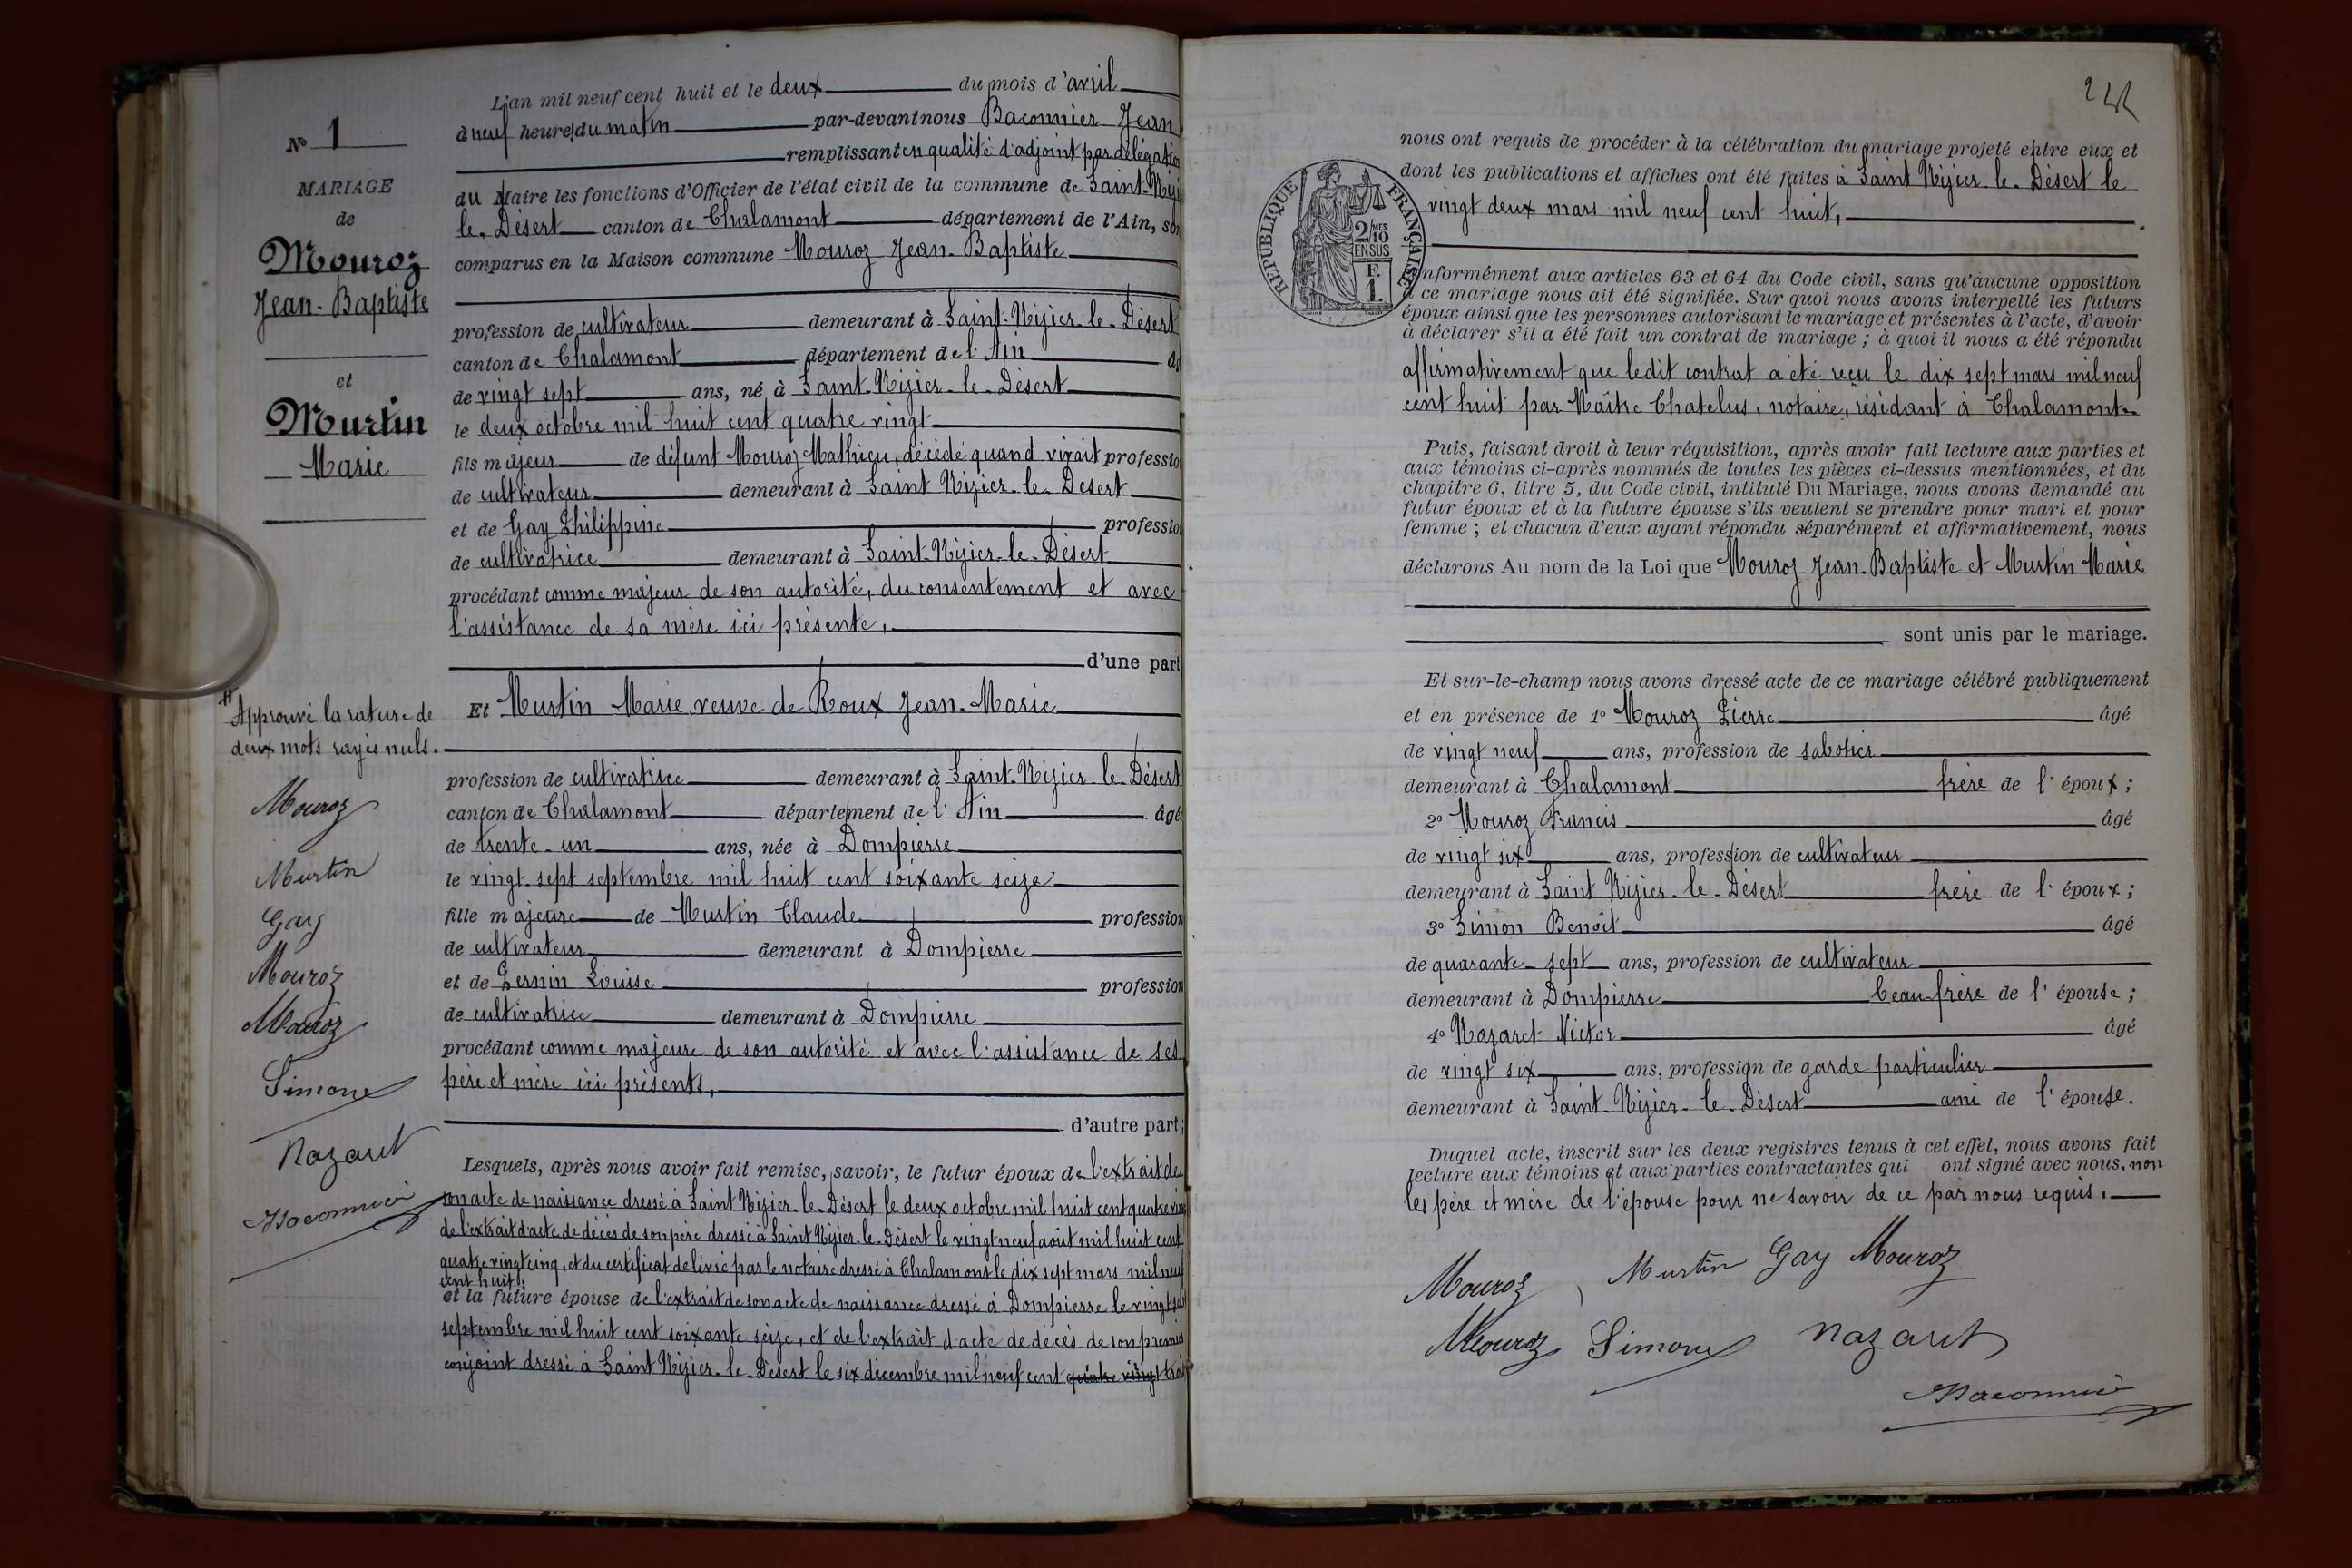 L'an mil neuf cent huit et le deux du mois d'avril
à neuf heures du matin par-devant nous Baconnier Jean
remplissant en qualité d'adjoint par délégation
du Maire les fonctions d'Officier de l'état civil de la commune de Saint-Nizier
le-Désert canton de Chalamont département de l'Ain, sont
comparus en la Maison commune Mouroz Jean-Baptiste
profession de cultivateur demeurant à Saint-Nizier-le-Désert
canton de Chalamont département de l'Ain
de vingt sept ans, né à Saint-Nizier-le-Désert
le deux octobre mil huit cent quatre vingt
fils majeur de défunt Mouroz Mathieu, décédé quand vivait profession
de cultivateur demeurant à Saint Nizier-le-Désert
et de Gay Philippine profession
de cultivatrice demeurant à Saint-Nizier-le-Désert
procédant comme majeur de son autorité, du consentement et avec
l'assistance de sa mère ici présente,
d'une part
Et Murtin Marie veuve de Roux Jean-Marie
profession de cultivatrice demeurant à Saint-Nizier-le-Désert
canton de Chalamont département de l'Ain âgé
de trente-un ans, née à Dompierre
le vingt-sept septembre mil huit cent soixante seize
fille majeure de Murtin Claude profession
de cultivateur demeurant à Dompierre
et de Pernin Louise profession
de cultivatrice demeurant à Dompierre
procédant comme majeure de son autorité et avec l'assistance de ses
père et mère ici présents,
d'autre part;
Lesquels, après nous avoir fait remise, savoir, le futur époux de l'extrait de
son acte de naissance dressé à Saint Nizier-le-Désert le deux octobre mil huit cent quatre vingt
de l'extrait d'acte de décès de son père dressé à Saint Nizier-le-Désert le vingt neuf août mil huit cent
quatre vingt cinq, et du certificat délivré par le notaire dressé à Chalamont le dix sept mars mil neuf
cent huit;
et la future épouse de l'extrait de son acte de naissance dressé à Dompierre le vingt sept
septembre mil huit cent soixante seize, et de l'extrait d'acte de décès de son premier
conjoint dressé à Saint Nizier-le-Désert le six décembre mil neuf cent quatre vingt trois
No 1
MARIAGE
de
Mouroz
Jean-Baptiste
et
Murtin
Marie
Approuvé la rature de
deux mots rayés nuls.
Mouroz
Murtin
Gay
Mouroz
Mouroz
Simone
Nazaret
Baconnier
nous ont requis de procéder à la célébration du mariage projeté entre eux et
dont les publications et affiches ont été faites à Saint Nizier-le-Désert le
vingt deux mars mil neuf cent huit,
RÉPUBLIQUE FRANÇAISE
2/10 MES
EN SUS
F.
1.
conformément aux articles 63 et 64 du Code civil, sans qu'aucune opposition
à ce mariage nous ait été signifiée. Sur quoi nous avons interpellé les futurs
époux ainsi que les personnes autorisant le mariage et présentes à l'acte, d'avoir
à déclarer s'il a été fait un contrat de mariage; à quoi il nous a été répondu
affirmativement que ledit contrat a été reçu le dix sept mars mil neuf
cent huit par Maître Chatelus, notaire, résidant à Chalamont.
Puis, faisant droit à leur réquisition, après avoir fait lecture aux parties et
aux témoins ci-après nommés de toutes les pièces ci-dessus mentionnées, et du
chapitre 6, titre 5, du Code civil, intitulé Du Mariage, nous avons demandé au
futur époux et à la future épouse s'ils veulent se prendre pour mari et pour
femme; et chacun d'eux ayant répondu séparément et affirmativement, nous
déclarons Au nom de la Loi que Mouroz Jean-Baptiste et Murtin Marie
sont unis par le mariage.
Et sur-le-champ nous avons dressé acte de ce mariage célébré publiquement
et en présence de 1o Mouroz Pierre âgé
de vingt neuf ans, profession de sabotier
demeurant à Chalamont frère de l'époux;
2o Mouroz Francis âgé
de vingt six ans, profession de cultivateur
demeurant à Saint Nizier-le-Désert frère de l'époux;
3o Simon Benoît âgé
de quarante-sept ans, profession de cultivateur
demeurant à Dompierre beau-frère de l'épouse;
4o Nazaret Victor âgé
de vingt six ans, profession de garde particulier
demeurant à Saint-Nizier-le-Désert ami de l'épouse.
Duquel acte, inscrit sur les deux registres tenus à cet effet, nous avons fait
lecture aux témoins et aux parties contractantes qui ont signé avec nous, non
les père et mère de l'épouse pour ne savoir de ce par nous requis.
Mouroz Murtin Gay Mouroz
Mouroz Simone Nazaret
Baconnier